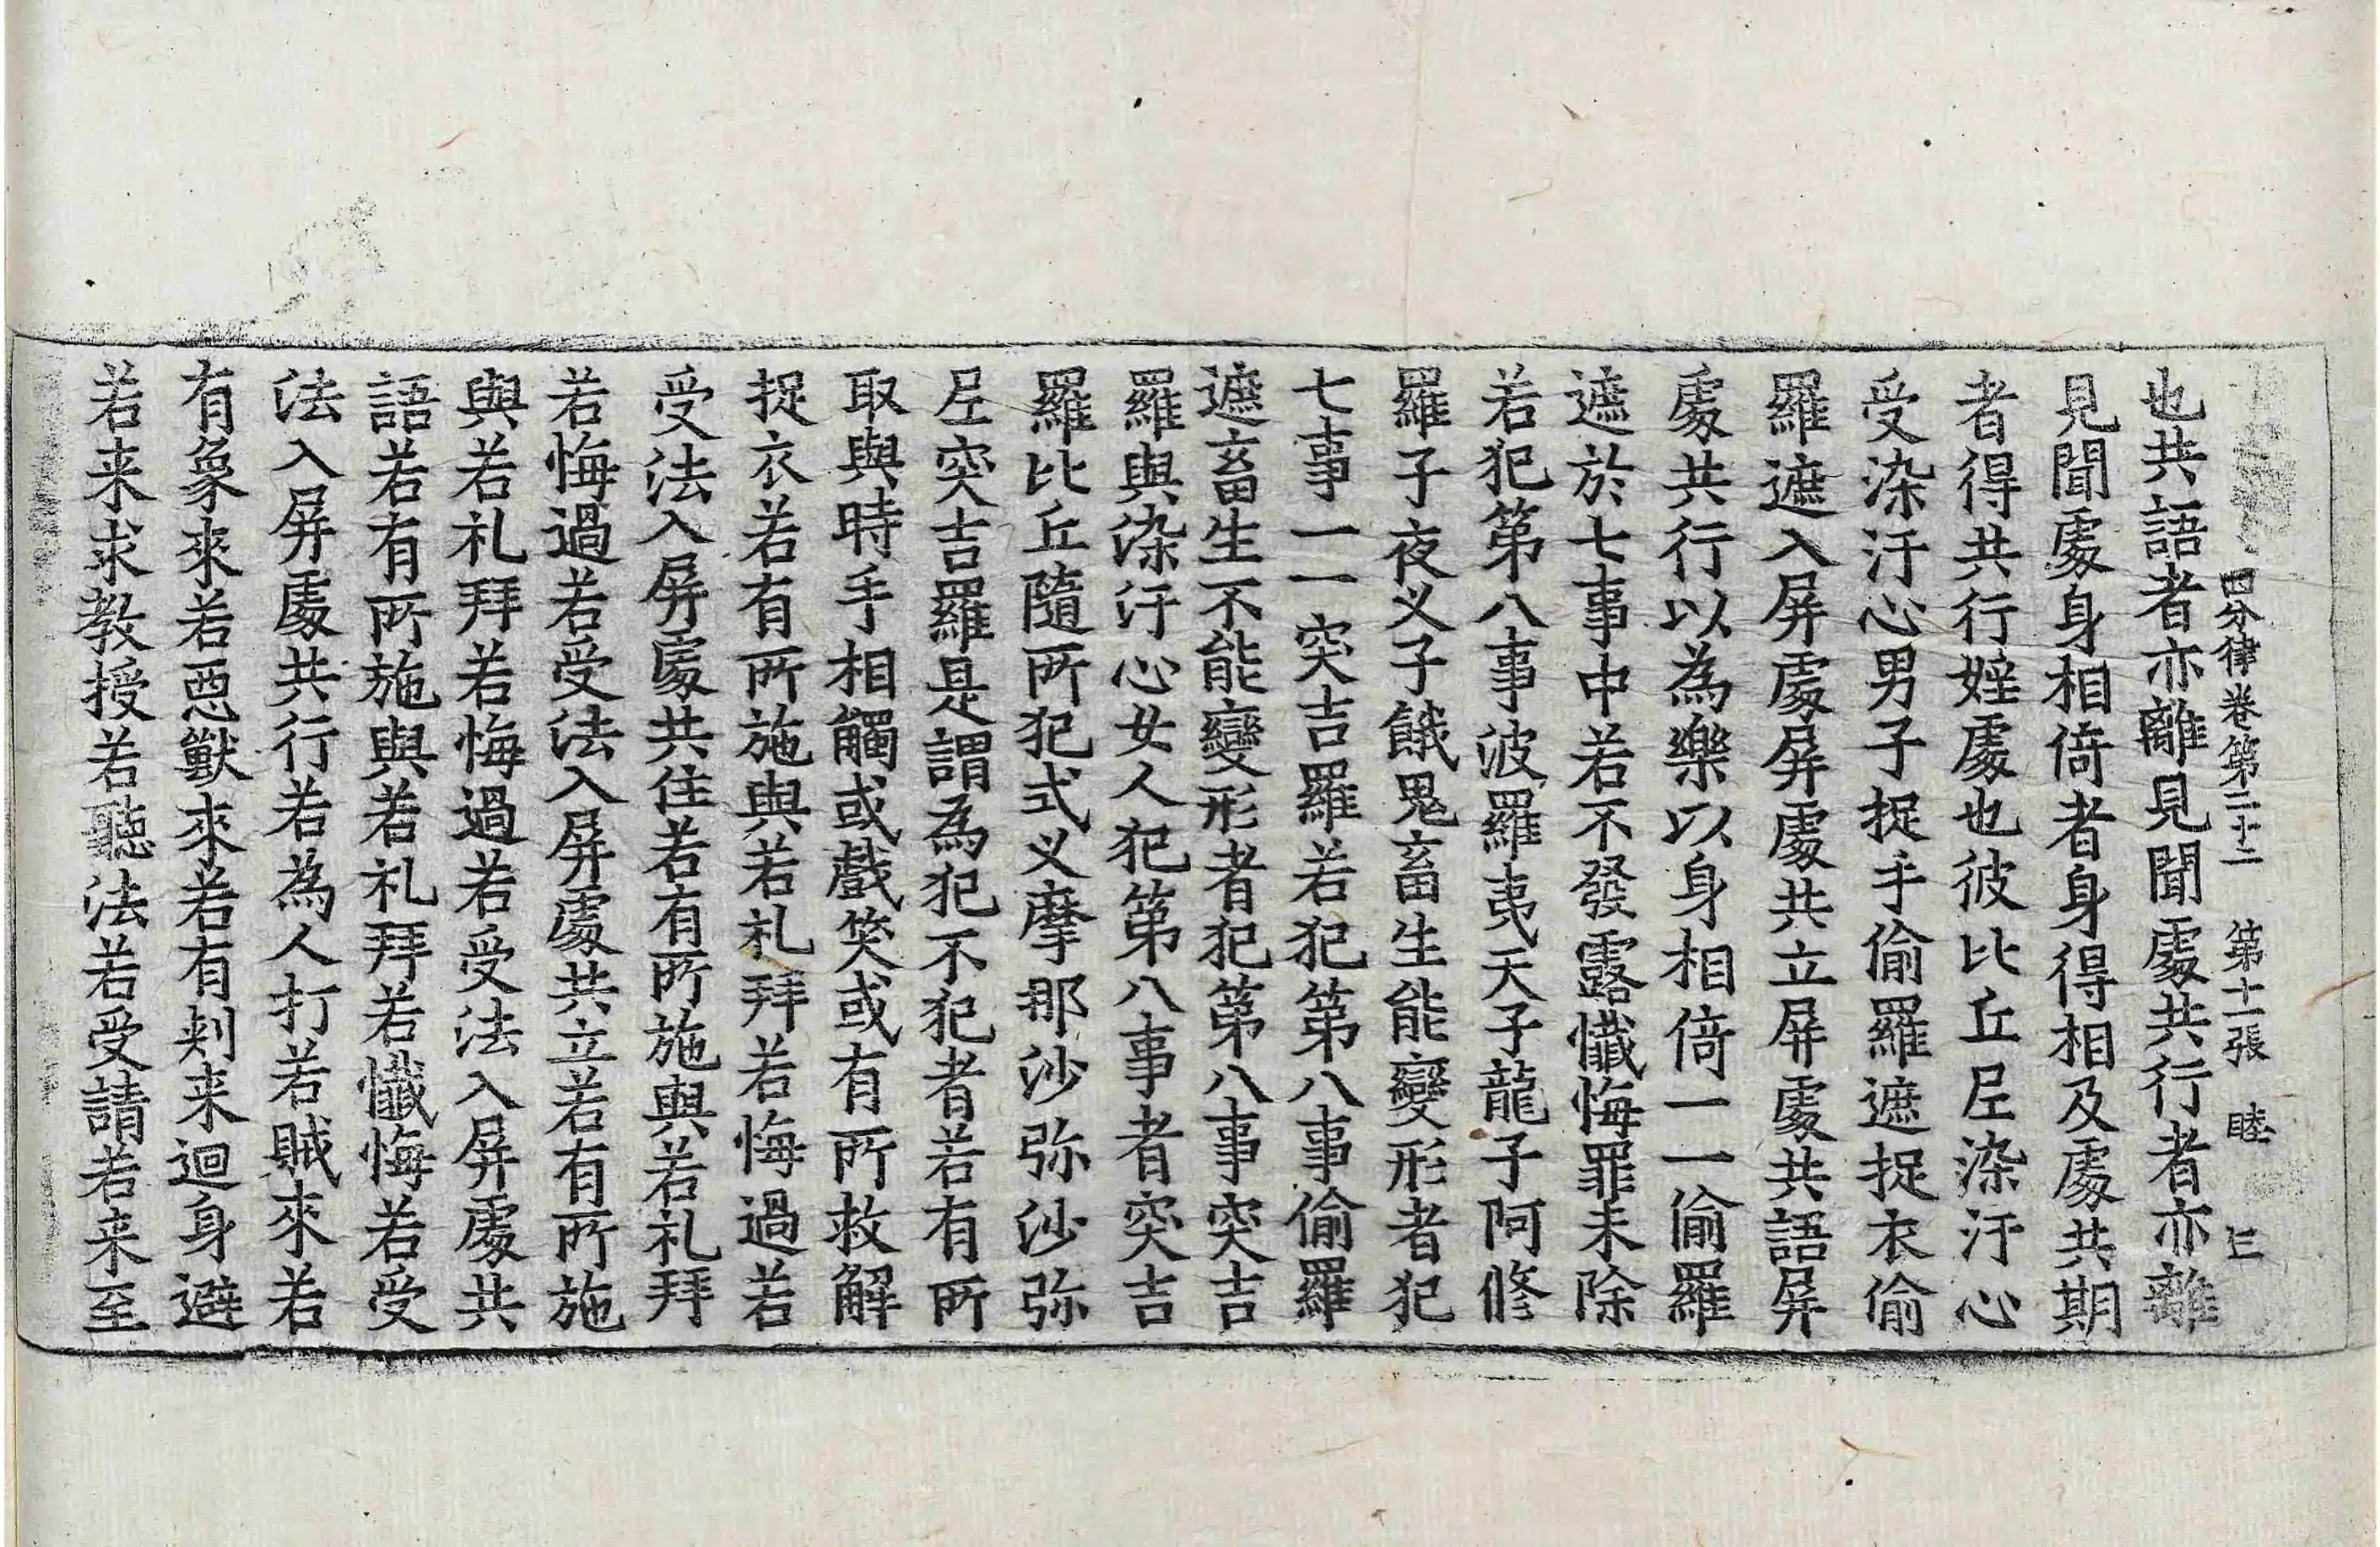 四分律卷第二十二　第十一張　睦　三
也共語者亦離見聞處共行者亦離
見聞處身相倚者身得相及處共期
者得共行婬處也彼比丘尼染汙心
受染汙心男子捉手偷羅遮捉衣偷
羅遮入屏處屏處共立屏處共語屏
處共行以為樂以身相倚一一偷羅
遮於七事中若不發露懺悔罪未除
若犯第八事波羅夷天子龍子阿修
羅子夜义子餓鬼畜生能變形者犯
七事一一突吉羅若犯第八事偷羅
遮畜生不能變形者犯第八事突吉
羅與染汙心女人犯第八事者突吉
羅比丘隨所犯式义摩那沙弥沙弥
尼突吉羅是謂為犯不犯者若有所
取與時手相觸或戲笑或有所救解
捉衣若有所施與若礼拜若悔過若
受法入屏處共住若有所施與若礼拜
若悔過若受法入屏處共立若有所施
與若礼拜若悔過若受法入屏處共
語若有所施與若礼拜若懺悔若受
法入屏處共行若為人打若賊來若
有象來若惡獸來若有刾来迴身避
若来求教授若聽法若受請若来至